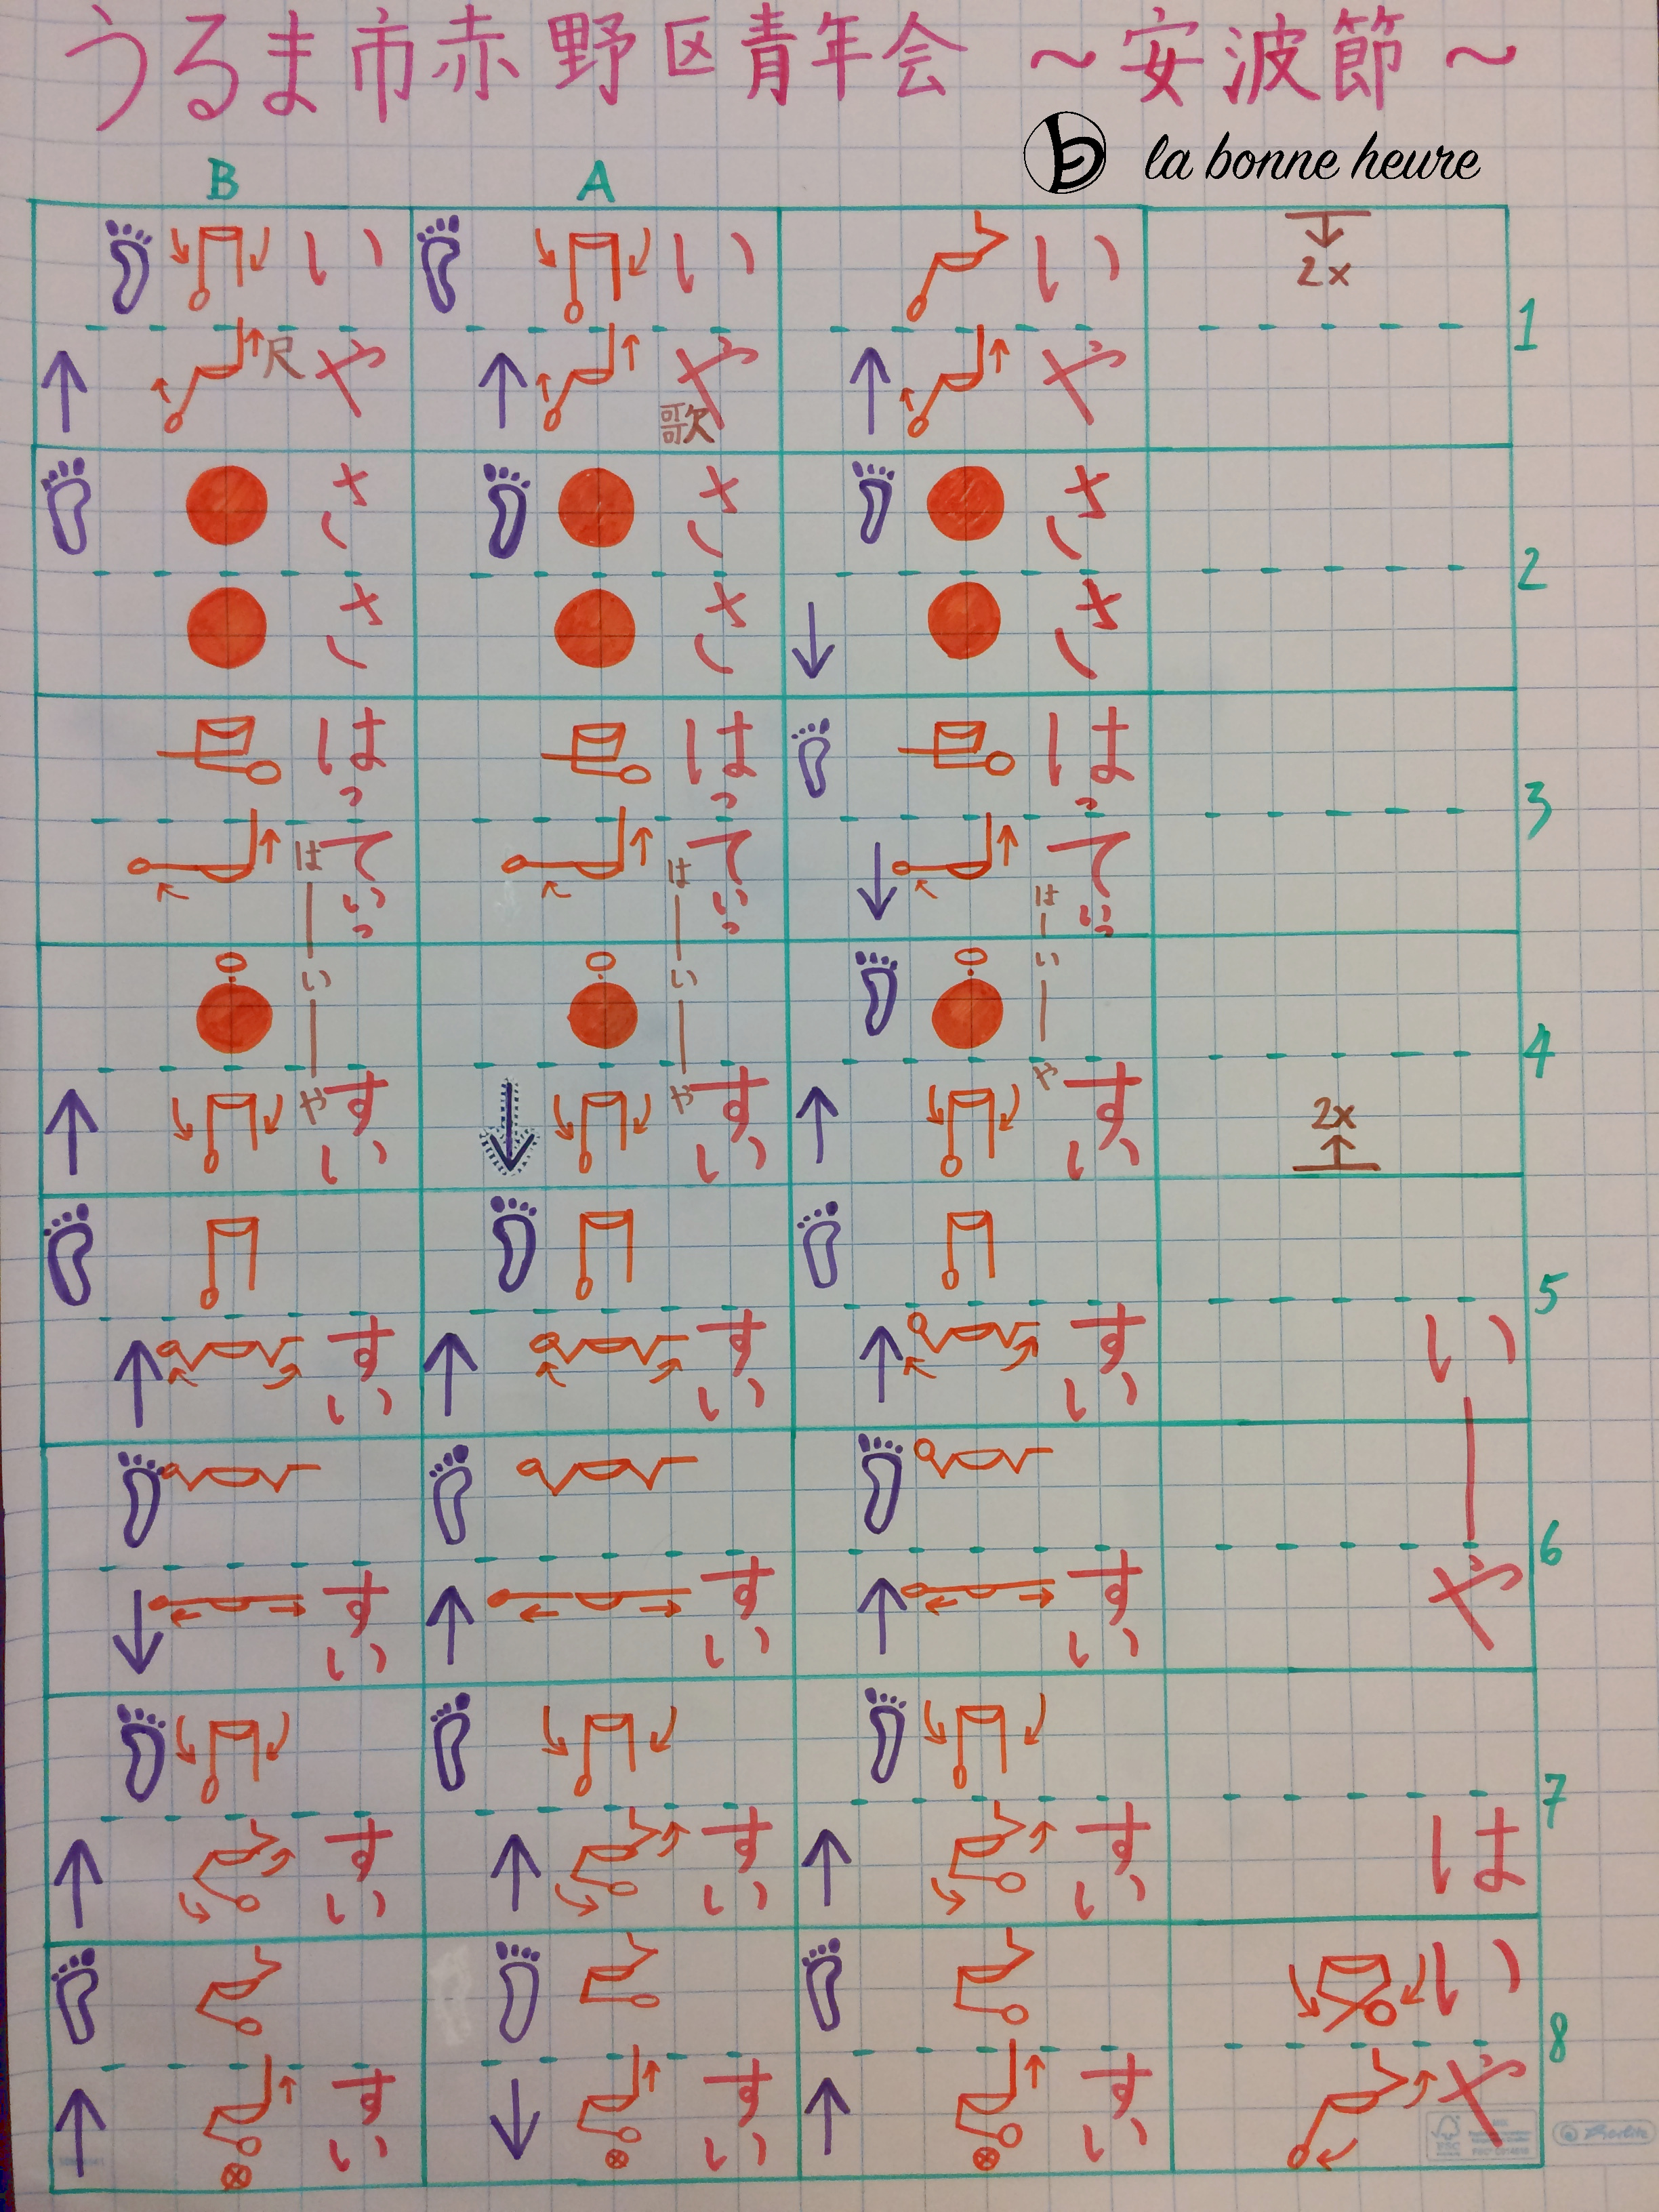 うるま市赤野区青年会 〜安波節〜
b la bonne heure
B A
1
2
3
4
5
6
7
8
2x
2x
いーや
は
いや
いや
ささ
はってぃっ
はーいーや
すい
すい
すい
すい
すい
いや
歌
ささ
はってぃっ
はーいーや
すい
すい
すい
すい
すい
いや
尺
ささ
はってぃっ
はーいーや
すい
すい
すい
すい
すい